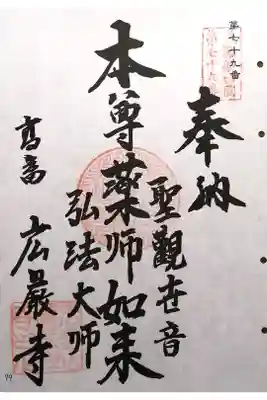 第七十九番
奉納
聖觀世音
本尊薬師如来
弘法大師
高富
広嚴寺